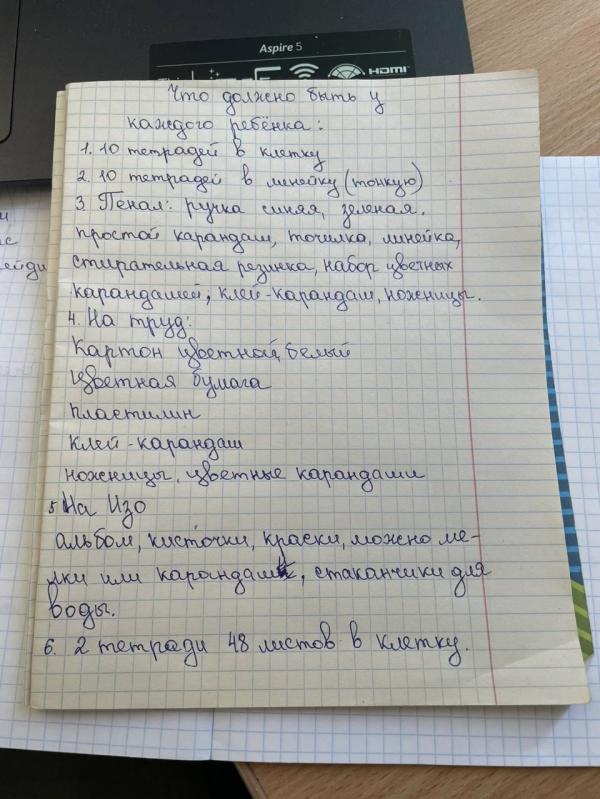 Aspire 5
HDMI
Что должно быть у
каждого ребёнка:
1. 10 тетрадей в клетку
2. 10 тетрадей в линейку (тонкую)
3 Пенал: ручка синяя, зеленая.
простой карандаш, точилка, линейка,
стирательная резинка, набор цветных
карандашей, клей-карандаш, ножницы.
4. На труд:
Картон цветной, белый
цветная бумага
пластилин
клей-карандаш
ножницы, цветные карандаши
5 На Изо
альбом, кисточки, краски, можно ме-
лки или карандаши, стаканчики для
воды.
6. 2 тетради 48 листов в клетку.